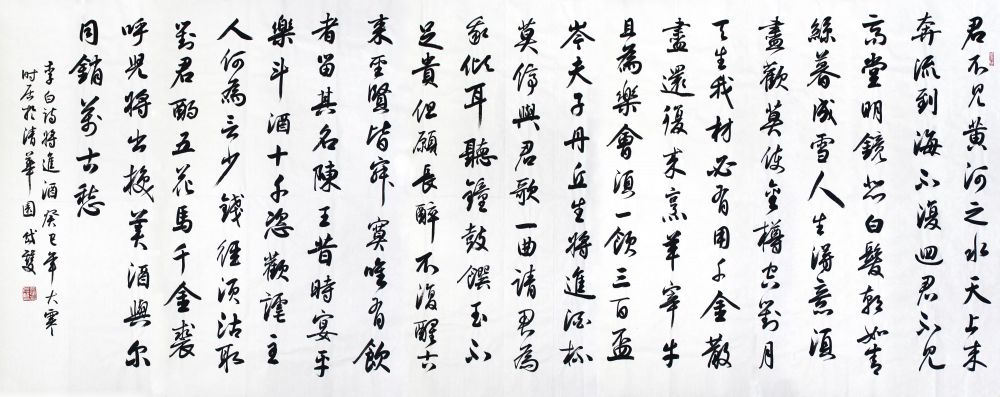 君不見黄河之水天上来
奔流到海不復迴君不見
高堂明鏡悲白髮朝如青
絲暮成雪人生得意須
盡歡莫使金樽空對月
天生我材必有用千金散
盡還復来烹羊宰牛
且為樂會須一飲三百盃
岑夫子丹丘生將進酒杯
莫停與君歌一曲請君為
我傾耳聽鐘鼓饌玉不
足貴但願長醉不復醒古
来聖賢皆寂寞唯有飲
者留其名陳王昔時宴平
樂斗酒十千恣歡謔主
人何為言少錢徑須沽取
對君酌五花馬千金裘
呼兒將出換美酒與尔
同銷萬古愁
李白詩將進酒癸巳年大寒
时居於清華園